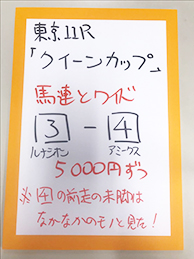 東京11R
「クイーンカップ」
馬連とワイド
3 - 4
ルナシオン アミークス
5000円ずつ
※4の前走の末脚は
なかなかのモノと見た!